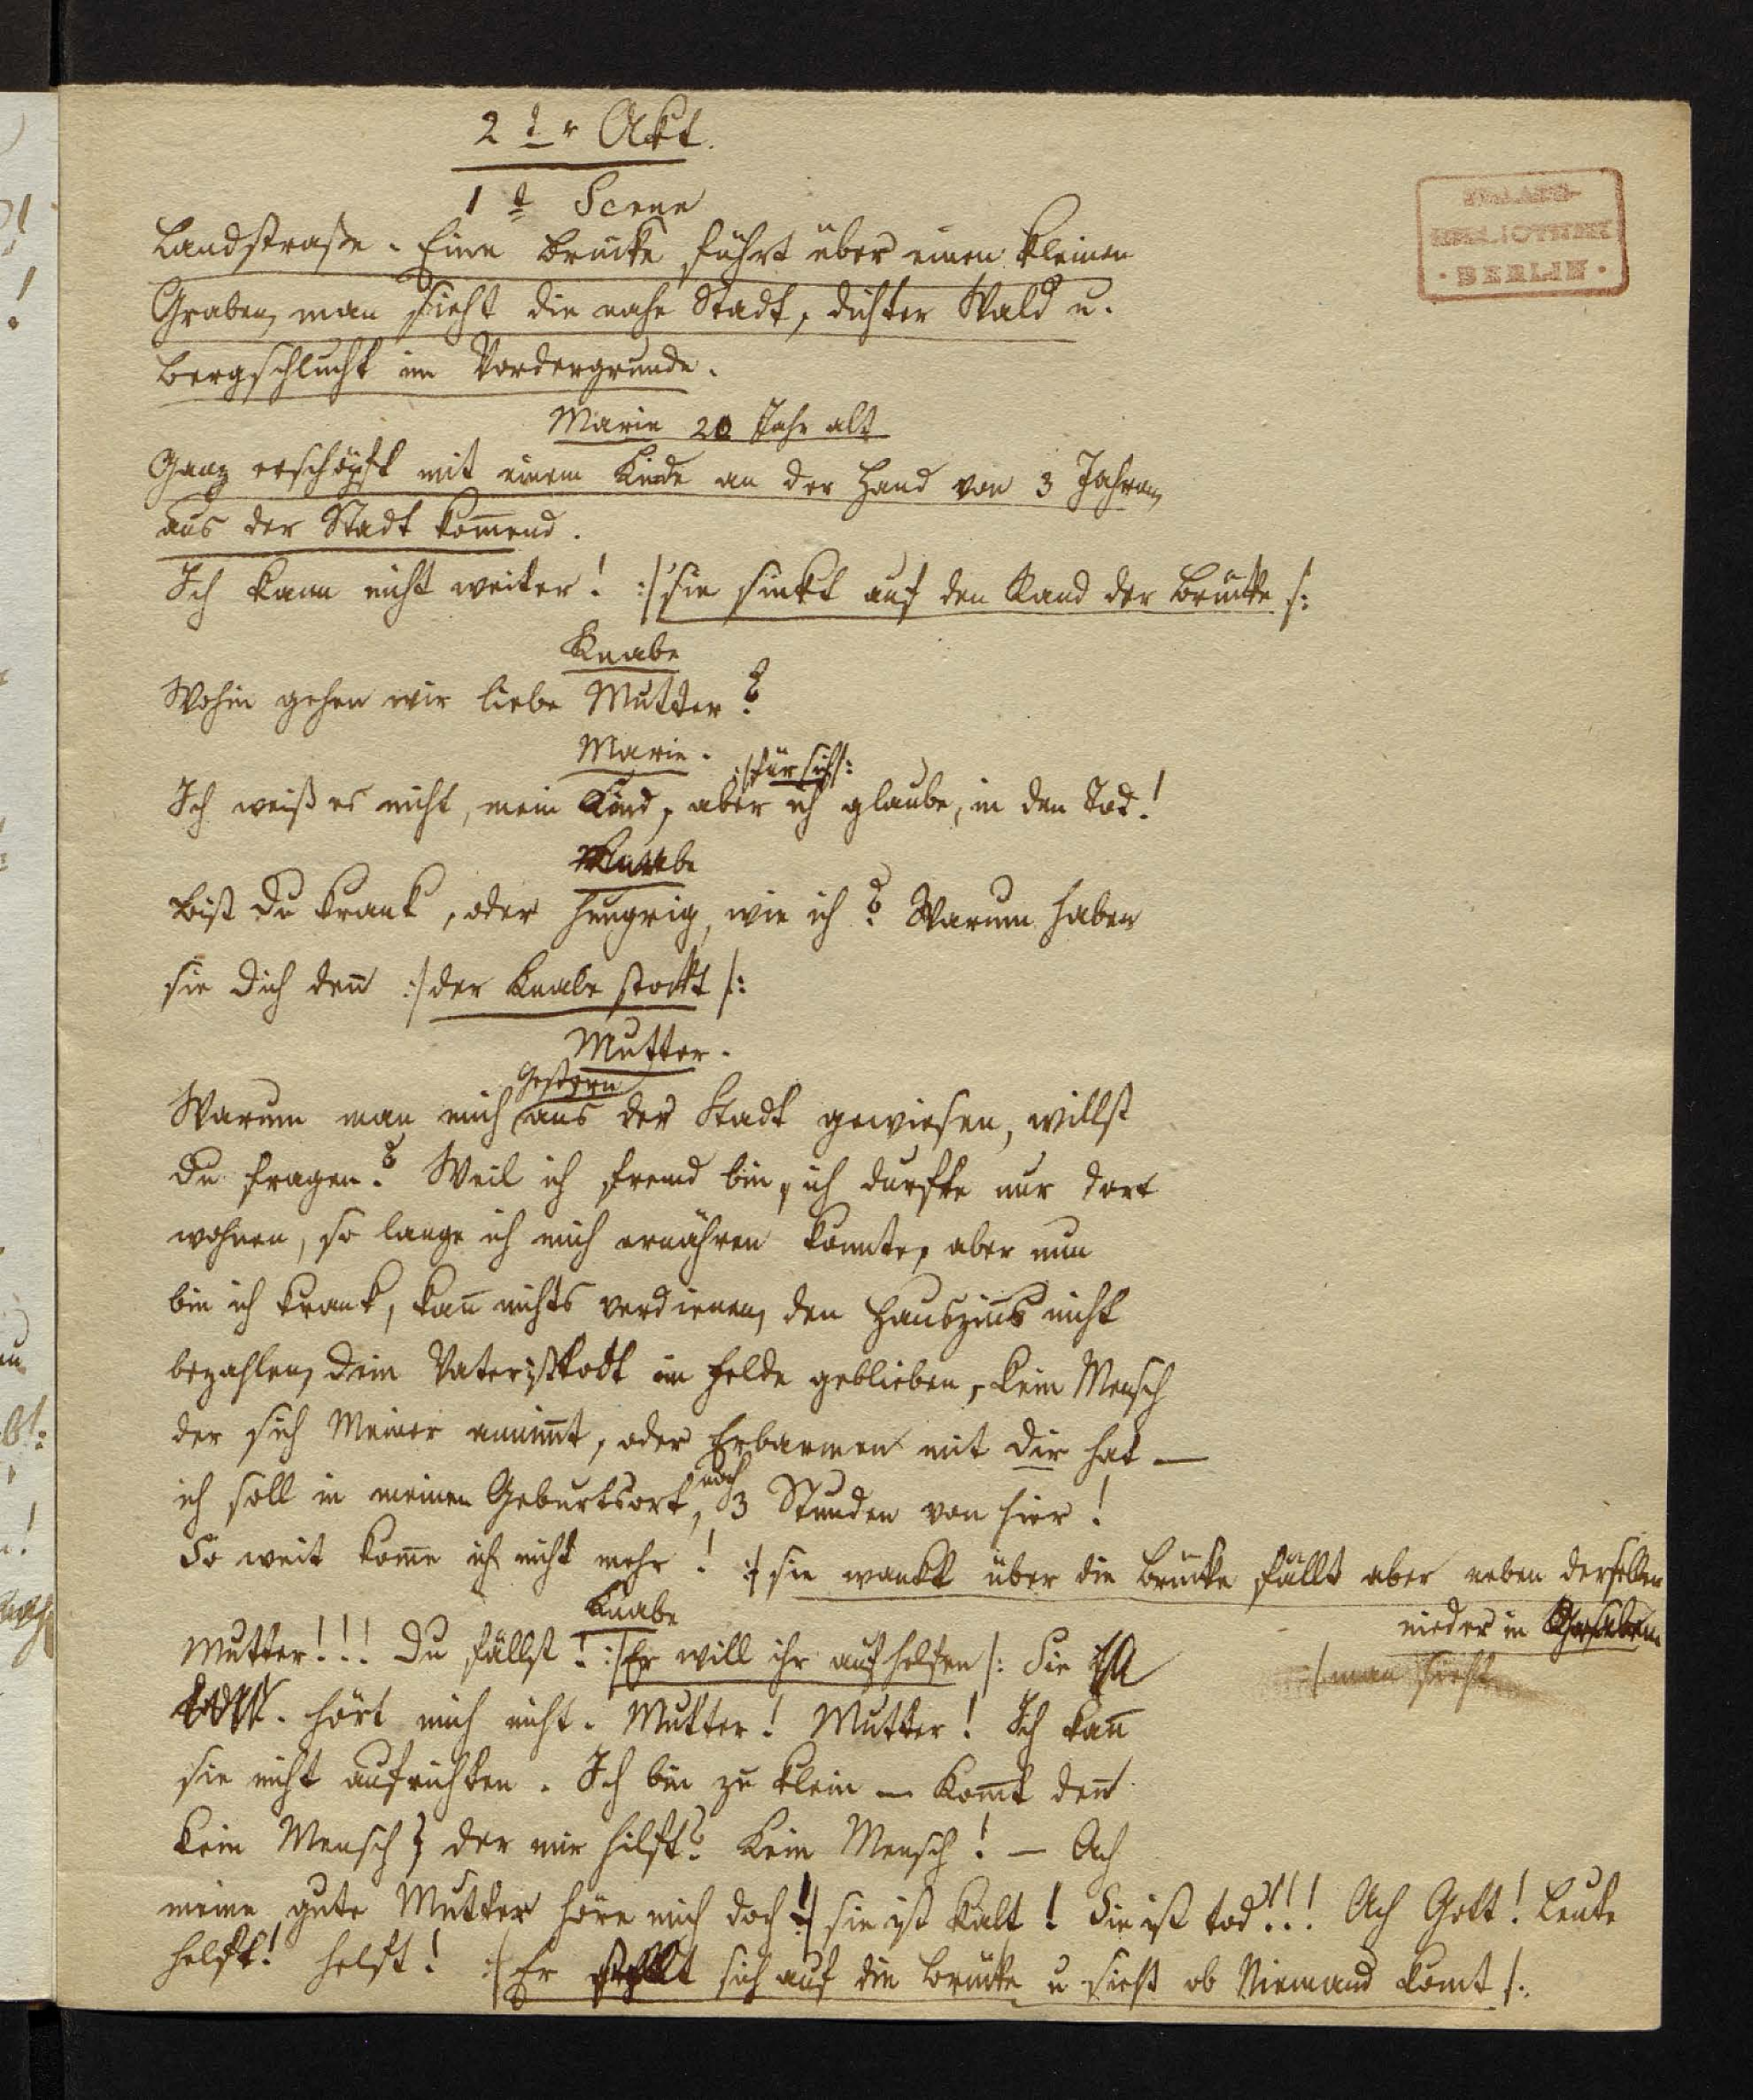 2ter Akt.
1te Scene
STAATS-
BIBLIOTHEK
· BERLIN ·
Landstraße. Eine Brücke führt über einen kleinen
Graben, man sieht die nahe Stadt, dichter Wald u.
Bergschlucht im Vordergrunde.
Marie 20 Jahr alt
Ganz erschöpft mit einem Kinde an der Hand von 3 Jahren,
aus der Stadt kom̄end.
Ich kann nicht weiter! :/ sie sinkt auf den Rand der Brücke /:
Knabe
Wohin gehen wir liebe Mutter?
Marie. :/ für sich /:
Ich weiß es nicht, mein Kind, aber ich glaube, in den Tod!
Knabe
Bist Du krank, oder hungrig, wie ich? Warum haben
sie Dich den̄ :/ der Knabe stockt /:
Mutter.
Gestern
Warum man mich aus der Stadt gewiesen, willst
Du fragen? Weil ich fremd bin, ich durfte nur dort
wohnen, so lange ich mich ernähren konnte, aber nun
bin ich krank, kan̄ nichts verdienen, den Hauszins nicht
bezahlen, Dein Vater ist todt im Felde geblieben, kein Mensch
der sich Meiner annim̄t, oder Erbarmen mit Dir hat —
ich soll in meinen Geburtsort, noch 3 Stunden von hier!
So weit kom̄e ich nicht mehr! :/ sie wankt über die Brücke fällt aber neben derselben
nieder in Graben
Knabe
Mutter!!! Du fällst! :/ Er will ihr aufhelfen /: Sie
/ man sieht
hört mich nicht. Mutter! Mutter! Ich kan̄
sie nicht aufrichten. Ich bin zu klein — Kom̄t den̄
kein Mensch der mir hilft? Kein Mensch! — Ach
meine gute Mutter höre mich doch! sie ist kalt! Sie ist tod!!! Ach Gott! Leute
helft! helft! :/ Er stellt sich auf die Brücke u sieht ob Niemand kom̄t /: